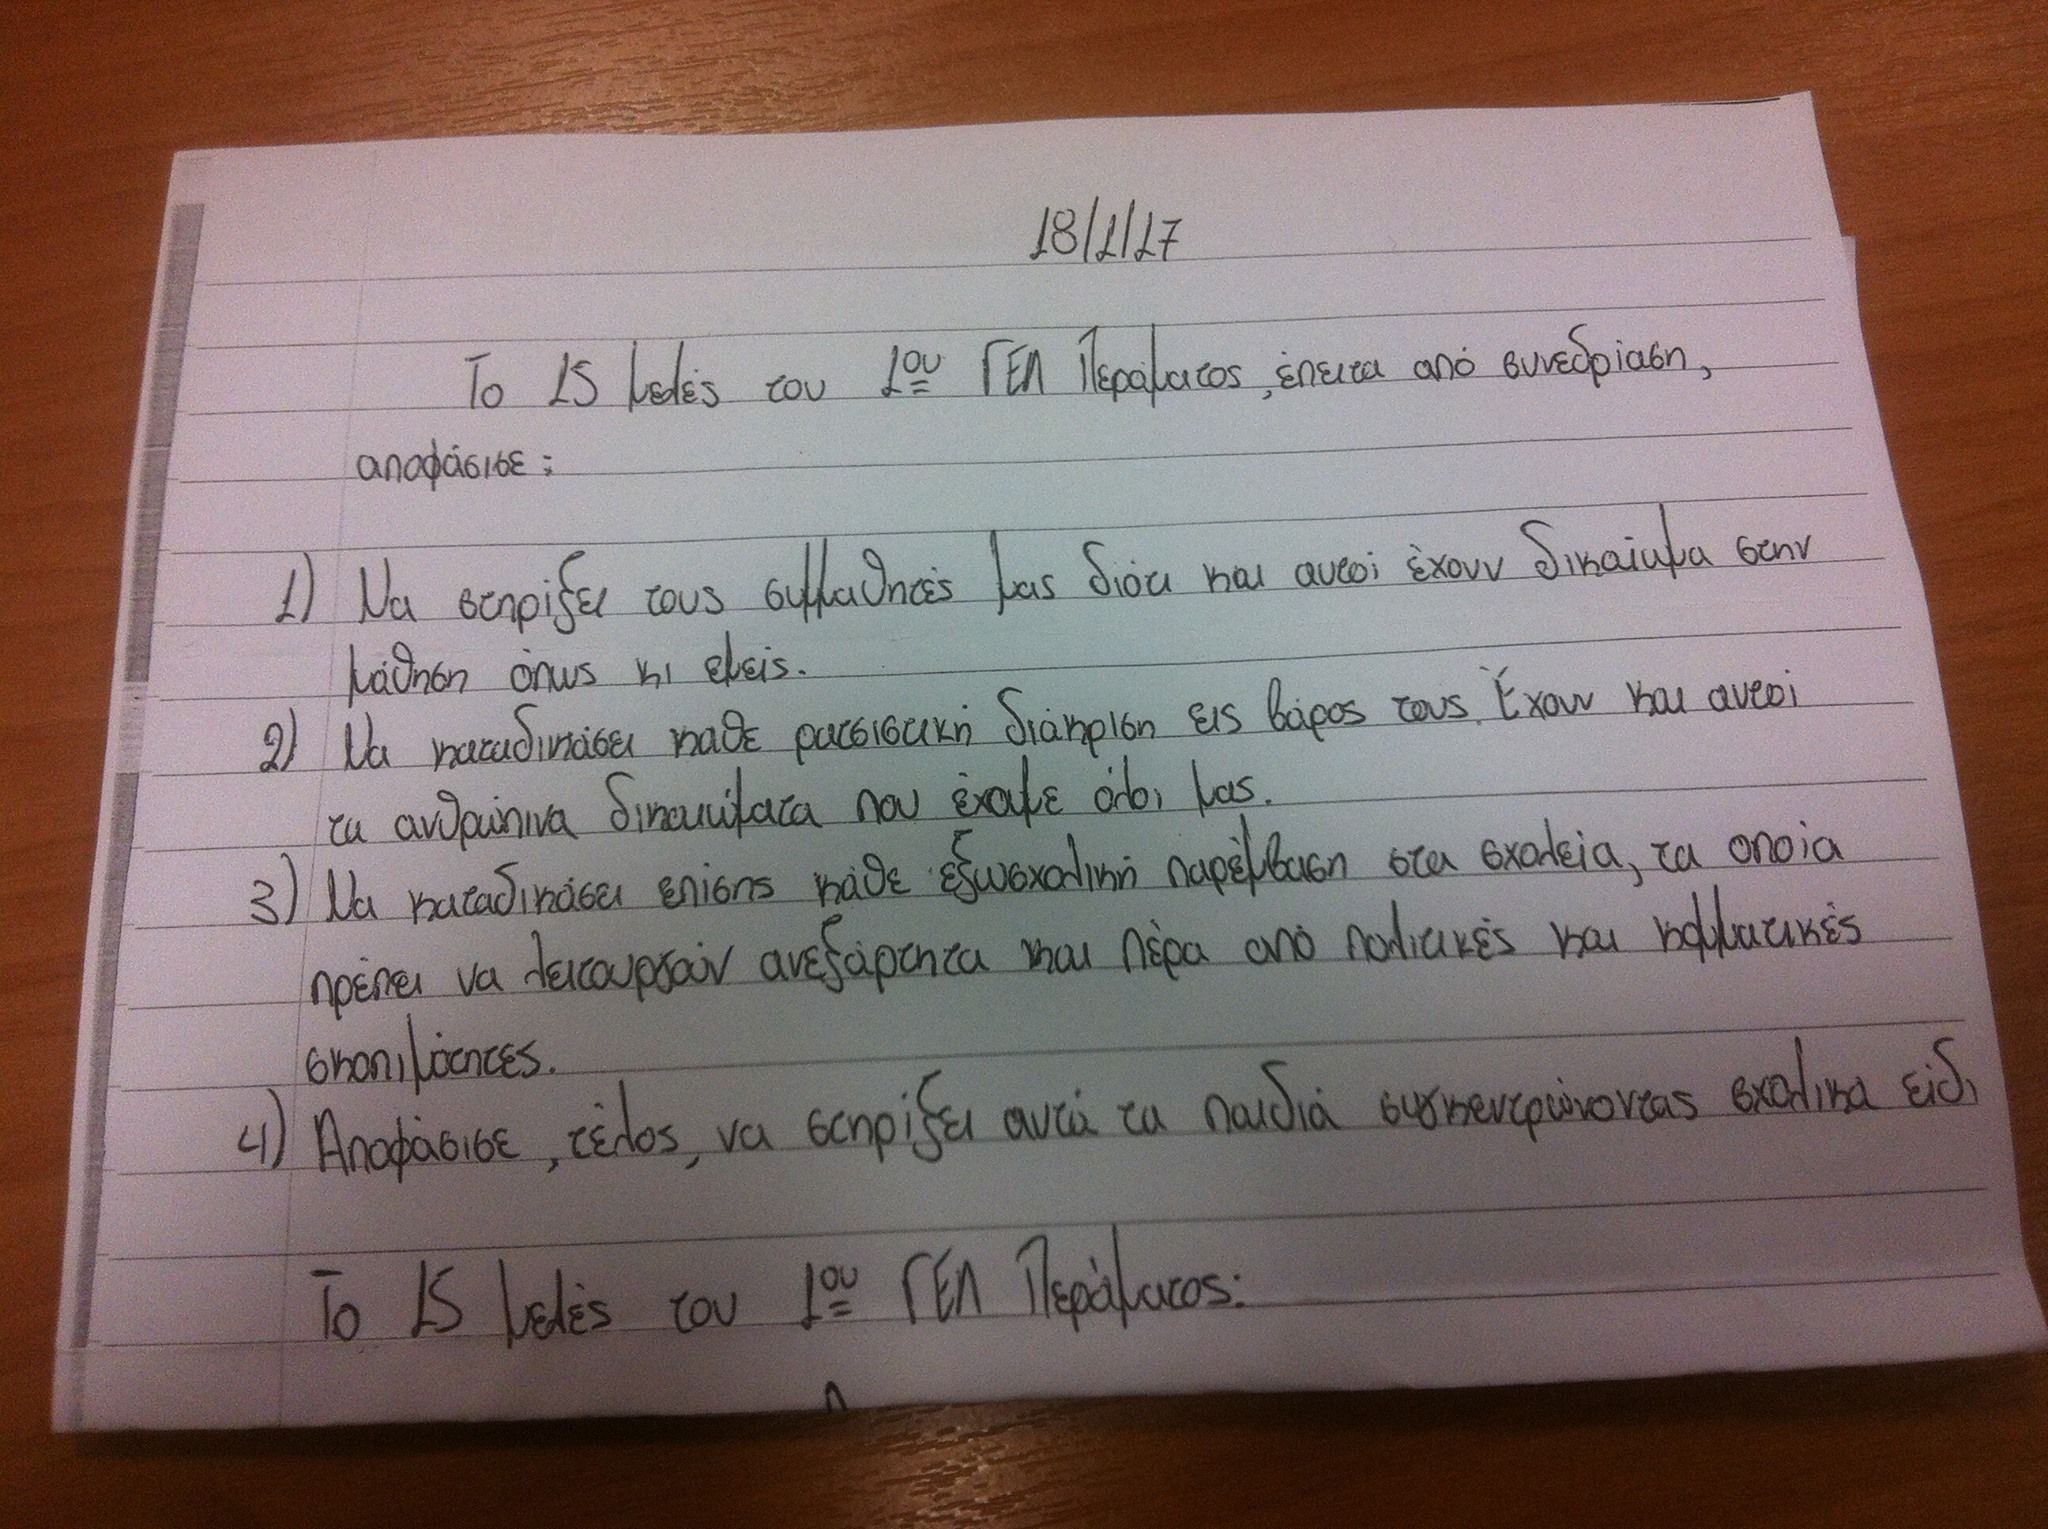 18/1/17
Το 15μελές του 1ου ΓΕΛ Περάματος, έπειτα από συνεδρίαση,
αποφάσισε:
1) Να στηρίξει τους συμμαθητές μας διότι και αυτοί έχουν δικαίωμα στην
μάθηση όπως κι εμείς.
2) Να καταδικάσει καθε ρατσιστική διάκριση εις βάρος τους. Έχουν και αυτοί
τα ανθρώπινα δικαιώματα που έχουμε όλοι μας.
3) Να καταδικάσει επίσης κάθε εξωσχολική παρέμβαση στα σχολεία, τα οποία
πρέπει να λειτουργούν ανεξάρτητα και πέρα από πολιτικές και κομματικές
σκοπιμότητες.
4) Αποφάσισε, τέλος, να στηρίξει αυτά τα παιδιά συγκεντρώνοντας σχολικα είδη
Το 15μελές του 1ου ΓΕΛ Περάματος: